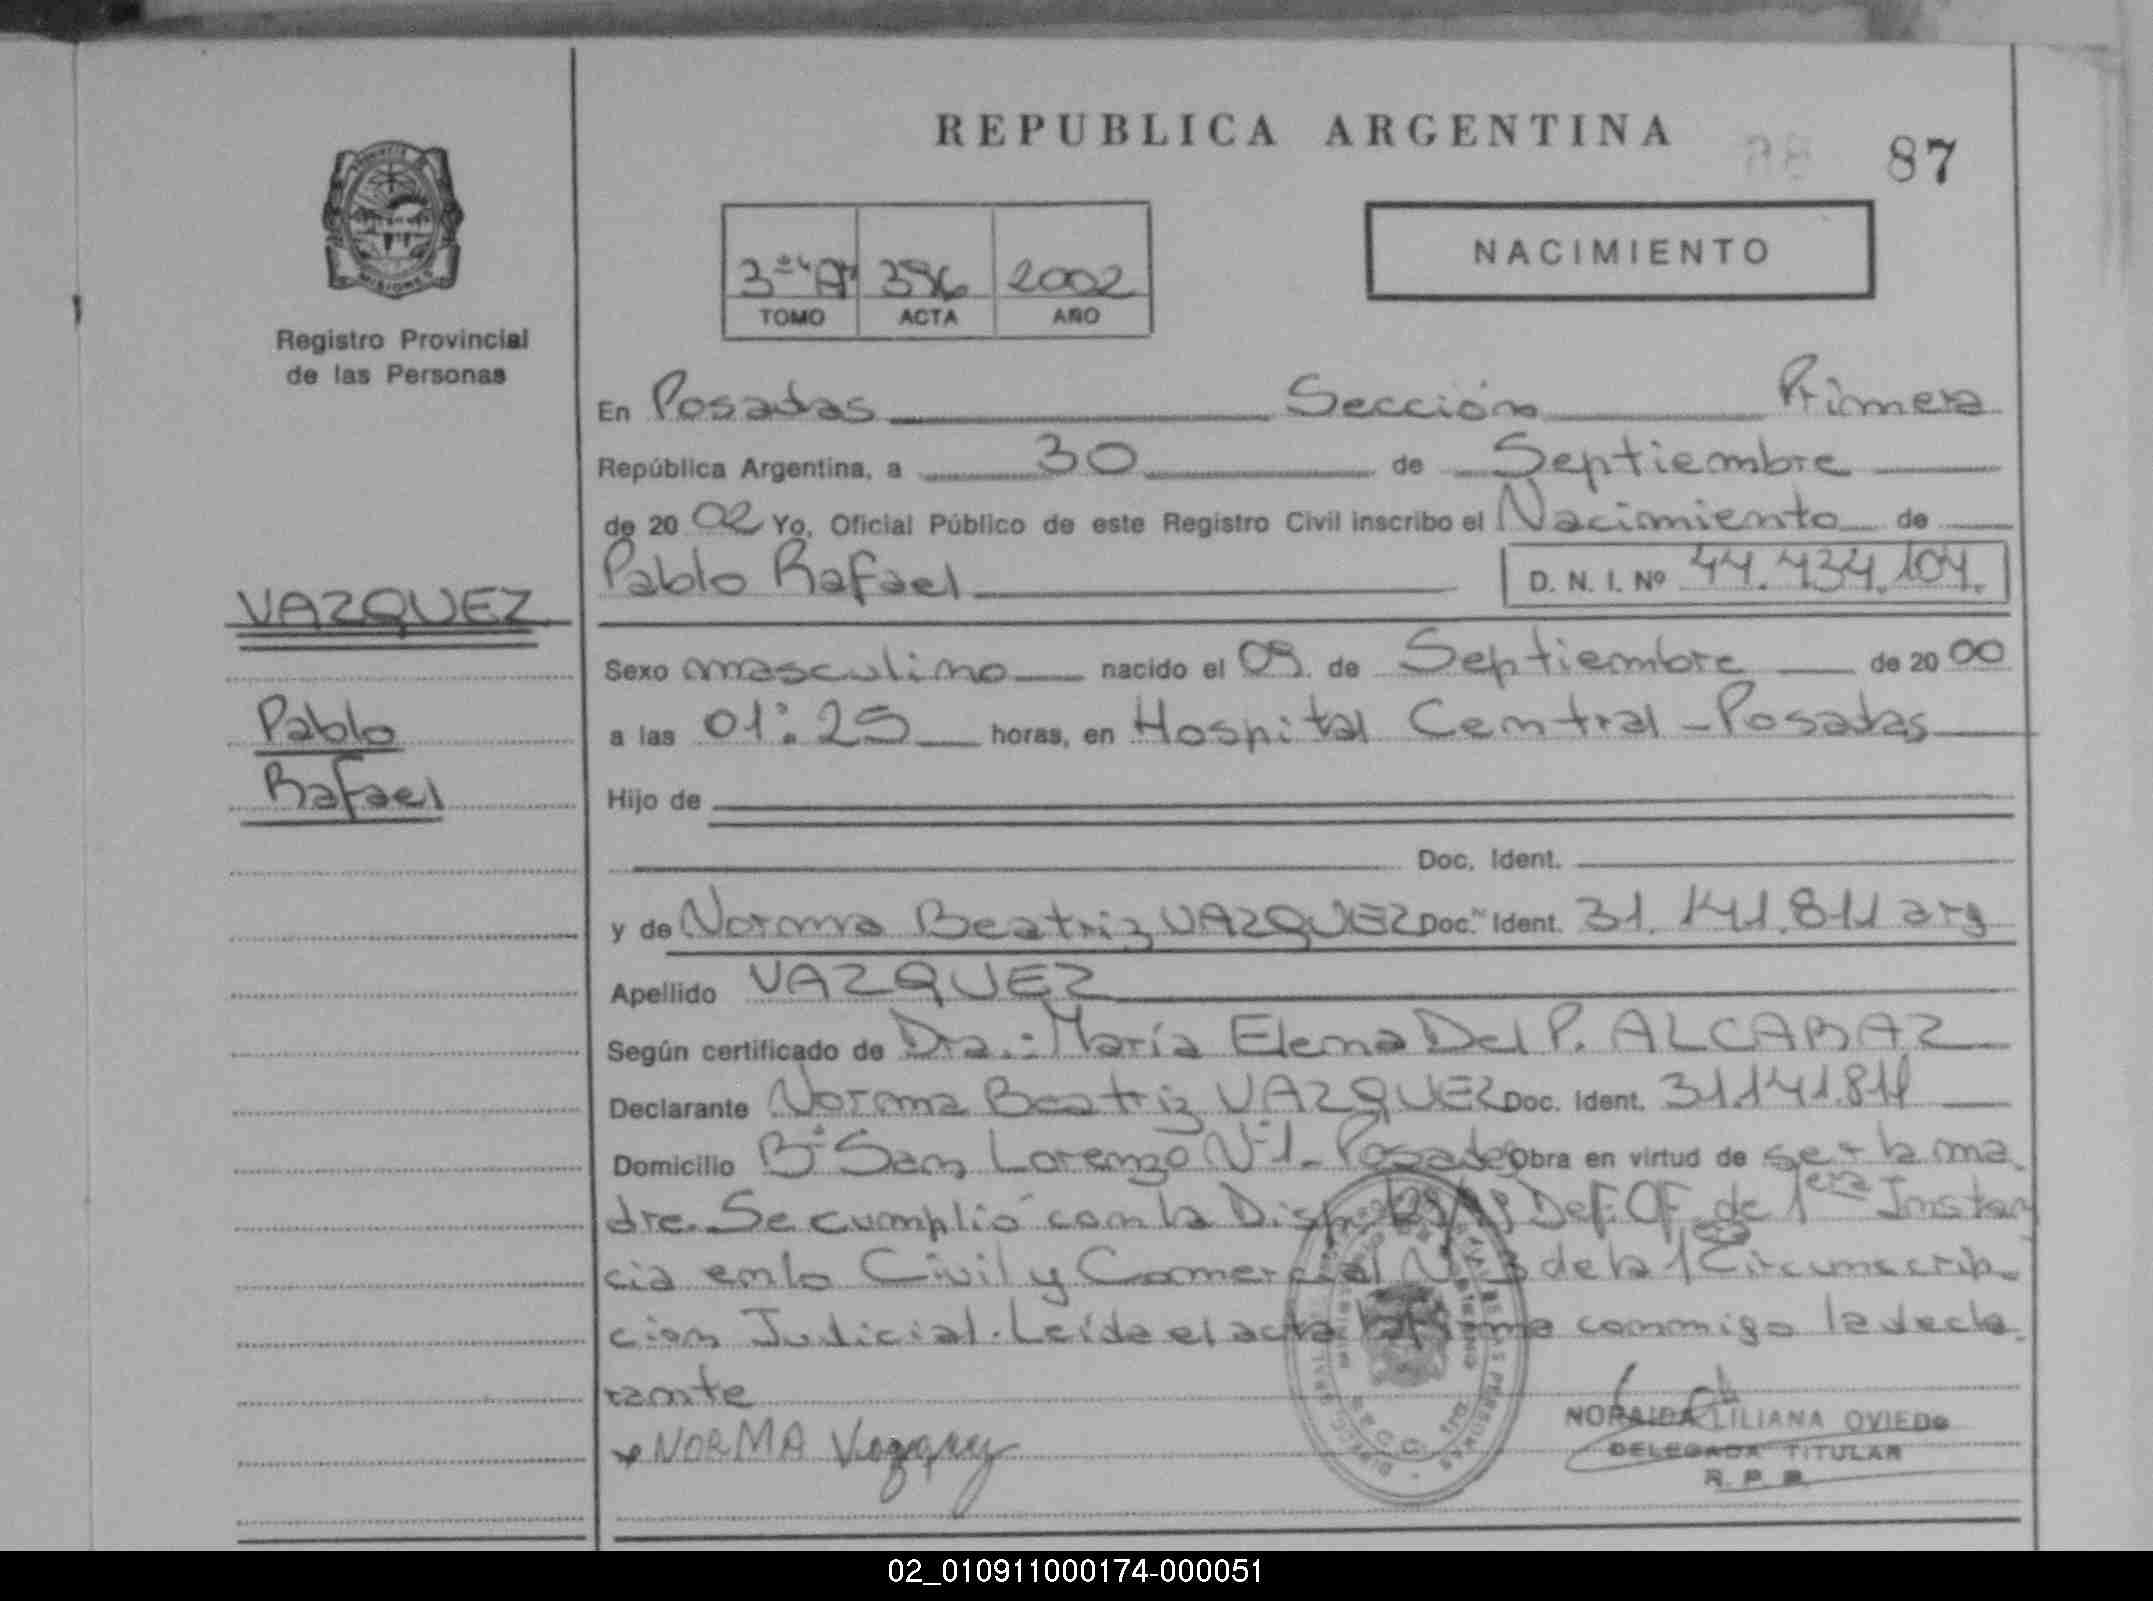 REPUBLICA ARGENTINA
87
NACIMIENTO
3º "A" 396 2002
TOMO ACTA AÑO
Registro Provincial
de las Personas
En Posadas Sección Primera
República Argentina, a 30 de Septiembre
de 20 02 Yo, Oficial Público de este Registro Civil inscribo el Nacimiento de
Pablo Rafael D. N. I. Nº 44.434.104.
VAZQUEZ
Pablo
Rafael
Sexo masculino nacido el 09 de Septiembre de 20 00
a las 01:25 horas, en Hospital Central - Posadas
Hijo de
Doc. Ident.
y de Norma Beatriz VAZQUEZ Doc. Ident. 31.141.811 arg
Apellido VAZQUEZ
Según certificado de Dra.: María Elena Del P. ALCARAZ
Declarante Norma Beatriz VAZQUEZ Doc. Ident. 31.141.811
Domicilio Bº San Lorenzo Nº 1 - Posadas Obra en virtud de ser la ma
dre. Se cumplió con la Disp. Def. OF. de 1era Instan
cia en lo Civil y Comercial Nº 3 de la 1 Circunscrip
cion Judicial. Leída el acta la firma conmigo la decla
rante
NORMA Vazquez
NORAIDA LILIANA OVIEDO
DELEGADA TITULAR
R. P. P.
02_010911000174-000051